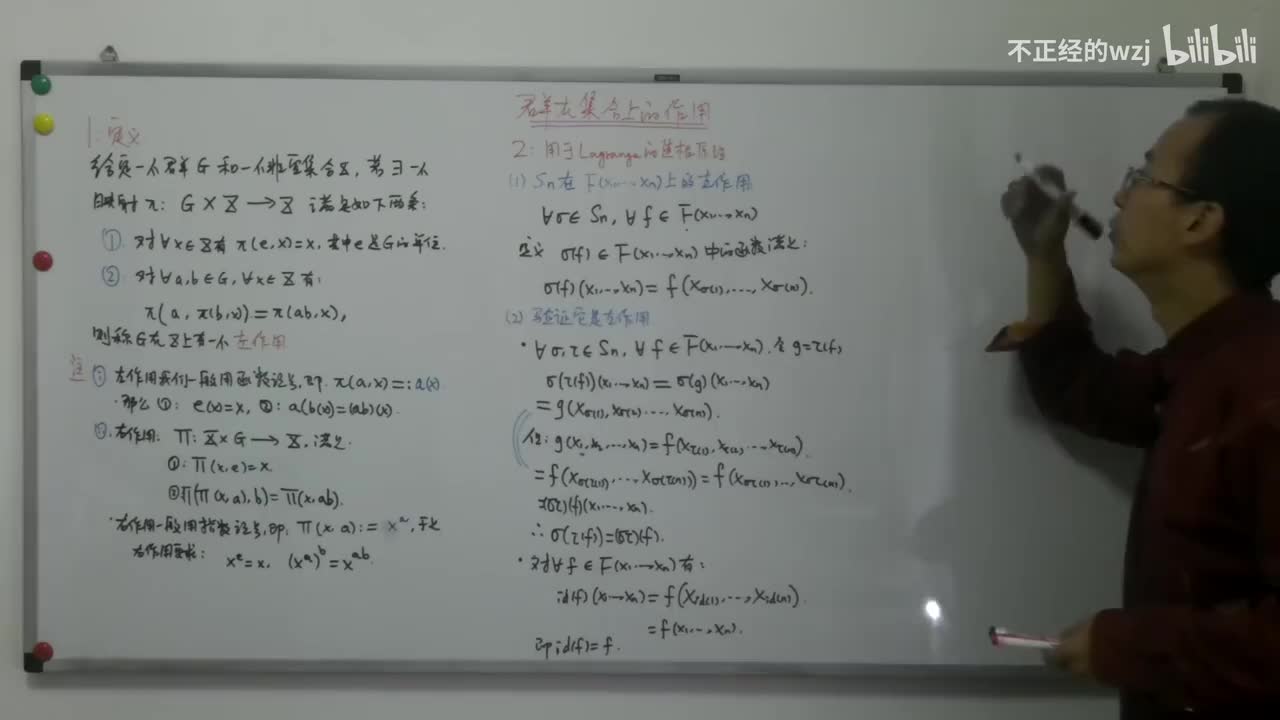 不正经的wzj bilibili
群在集合上的作用
1. 定义
给定一个群 G 和一个非空集合 X, 若 ∃ 一个
映射 π: G × X → X 满足如下两条:
① 对 ∀x∈X 有 π(e,x)=x, 其中 e 是 G 的单位.
② 对 ∀a,b∈G, ∀x∈X 有:
π(a, π(b,x)) = π(ab,x),
则称 G 在 X 上有一个 左作用
注 ① 左作用我们一般用函数记号, 即. π(a,x)=: a(x)
· 那么 ①: e(x)=x, ②: a(b(x))=(ab)(x).
②. 右作用: Π: X×G → X, 满足.
①: Π(x,e)=x.
②Π(Π(x,a),b)=Π(x,ab).
· 右作用一般用指数记号, 即, Π(x,a):= xᵃ, 于是
右作用要求: xᵉ=x, (xᵃ)ᵇ=xᵃᵇ.
2: 用于Lagrange的
(1) Sn 在 F(x₁,…,xn) 上的左作用
∀σ∈Sn, ∀f∈F(x₁,…,xn)
定义 σ(f)∈F(x₁…xn) 中的函数满足:
σ(f)(x₁,…,xn)=f(xσ(1),…,xσ(n)).
(2) 验证它是左作用
· ∀σ,τ∈Sn, ∀f∈F(x₁,…,xn), 令 g=τ(f)
σ(τ(f))(x₁…xn)=σ(g)(x₁,…,xn)
=g(xσ(1),xσ(2),…,xσ(n)).
但: g(x₁,x₂,…,xn)=f(xτ(1),xτ(2),…,xτ(n)).
=f(xσ(τ(1)),…,xσ(τ(n)))=f(xστ(1),…,xστ(n)).
=(στ)(f)(x₁…,xn).
∴ σ(τ(f))=(στ)(f).
· 对∀f∈F(x₁…xn) 有:
id(f)(x₁…xn)=f(xid(1),…,xid(n)).
=f(x₁,…,xn).
即 id(f)=f.